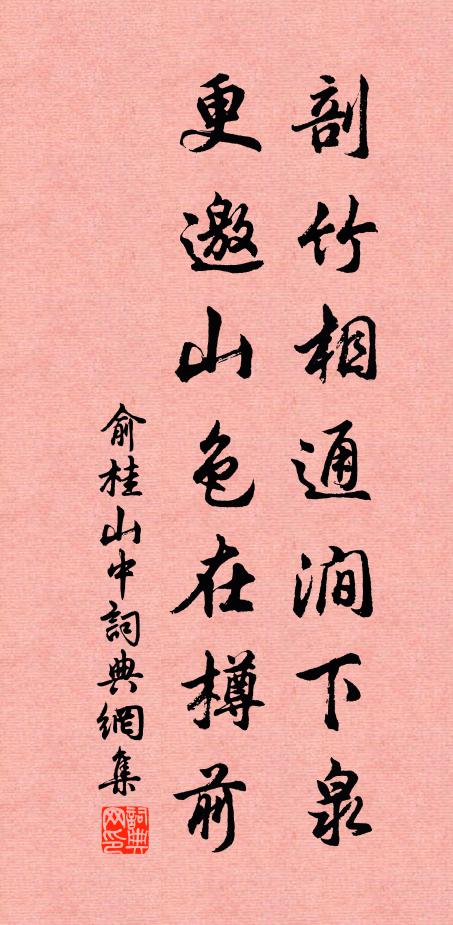 剖竹相通澗下泉
更邀山色在樽前
俞桂山中詞典網集
詞典网印